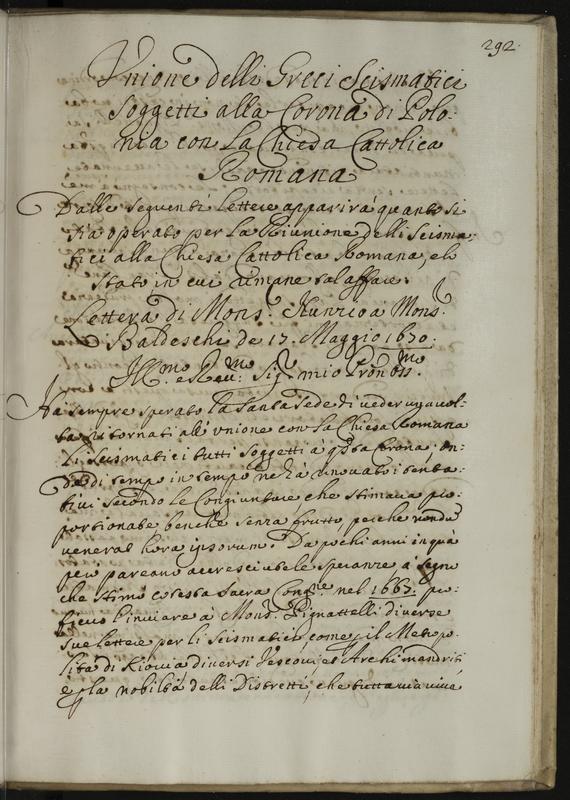 292.
Vnione delli Greci Scismatici
Soggetti alla Corona di Polo-
nia con La Chiesa Cattolica
Romana
Dalle seguenti Lettere apparirà quanto si
sia operato per La Riunione delli Scisma-
tici alla Chiesa Cattolica Romana, e lo
stato in cui rimane tal affare.
Lettera di Mons.r Nunzio à Mons.r
Baldeschi de 17. Maggio 1670.
Ill.mo e Reu.mo Sig.r mio Pron Oss.mo
Ha sempre sperato La Santa Sede di veder una uol-
ta ritornati all' vnione con La Chiesa Romana
Li Scismatici tutti soggetti à q.sta Corona, on-
de di tempo in tempo ne hà rinouato i tenta-
tiui secondo le Congiunture che stimaua pro-
portionate benche senza frutto, perche nondũ
venerat hora ipsorum. Da pochi anni in quà
però pareano accresciute le speranze à segno
che stimò cotesta Sacra Cong.ne nel 1663. pro-
ficuo l'inuiare à Mons.r Pignattelli diuerse
sue lettere per li Scismatici, come p il Metropo-
lita di Kiouia diuersi Vescoui, et Archimandriti
e p la nobiltà delli Distretti, che tuttauia viue